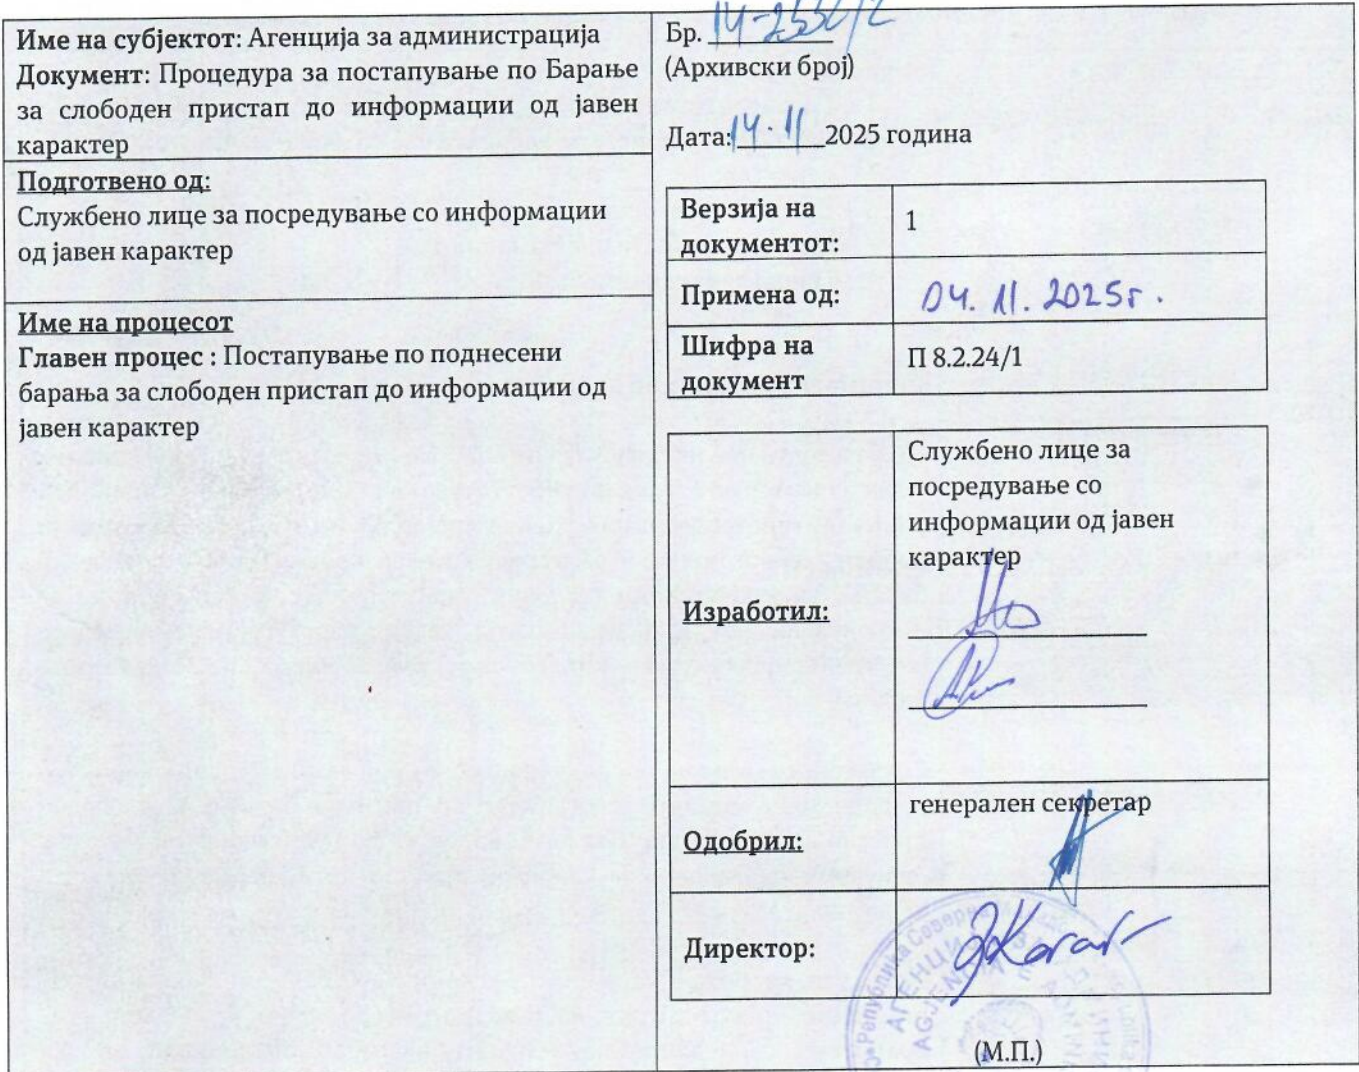 Име на субјектот: Агенција за администрација
Документ: Процедура за постапување по Барање
за слободен пристап до информации од јавен
карактер
Подготвено од:
Службено лице за посредување со информации
од јавен карактер
Име на процесот
Главен процес : Постапување по поднесени
барања за слободен пристап до информации од
јавен карактер
Бр.
(Архивски број)
Дата: 14.11 2025 година
Верзија на
документот:
1
Примена од:
04.11.2025г.
Шифра на
документ
П 8.2.24/1
Службено лице за
посредување со
информации од јавен
карактер
Изработил:
генерален секретар
Одобрил:
Директор:
(М.П.)